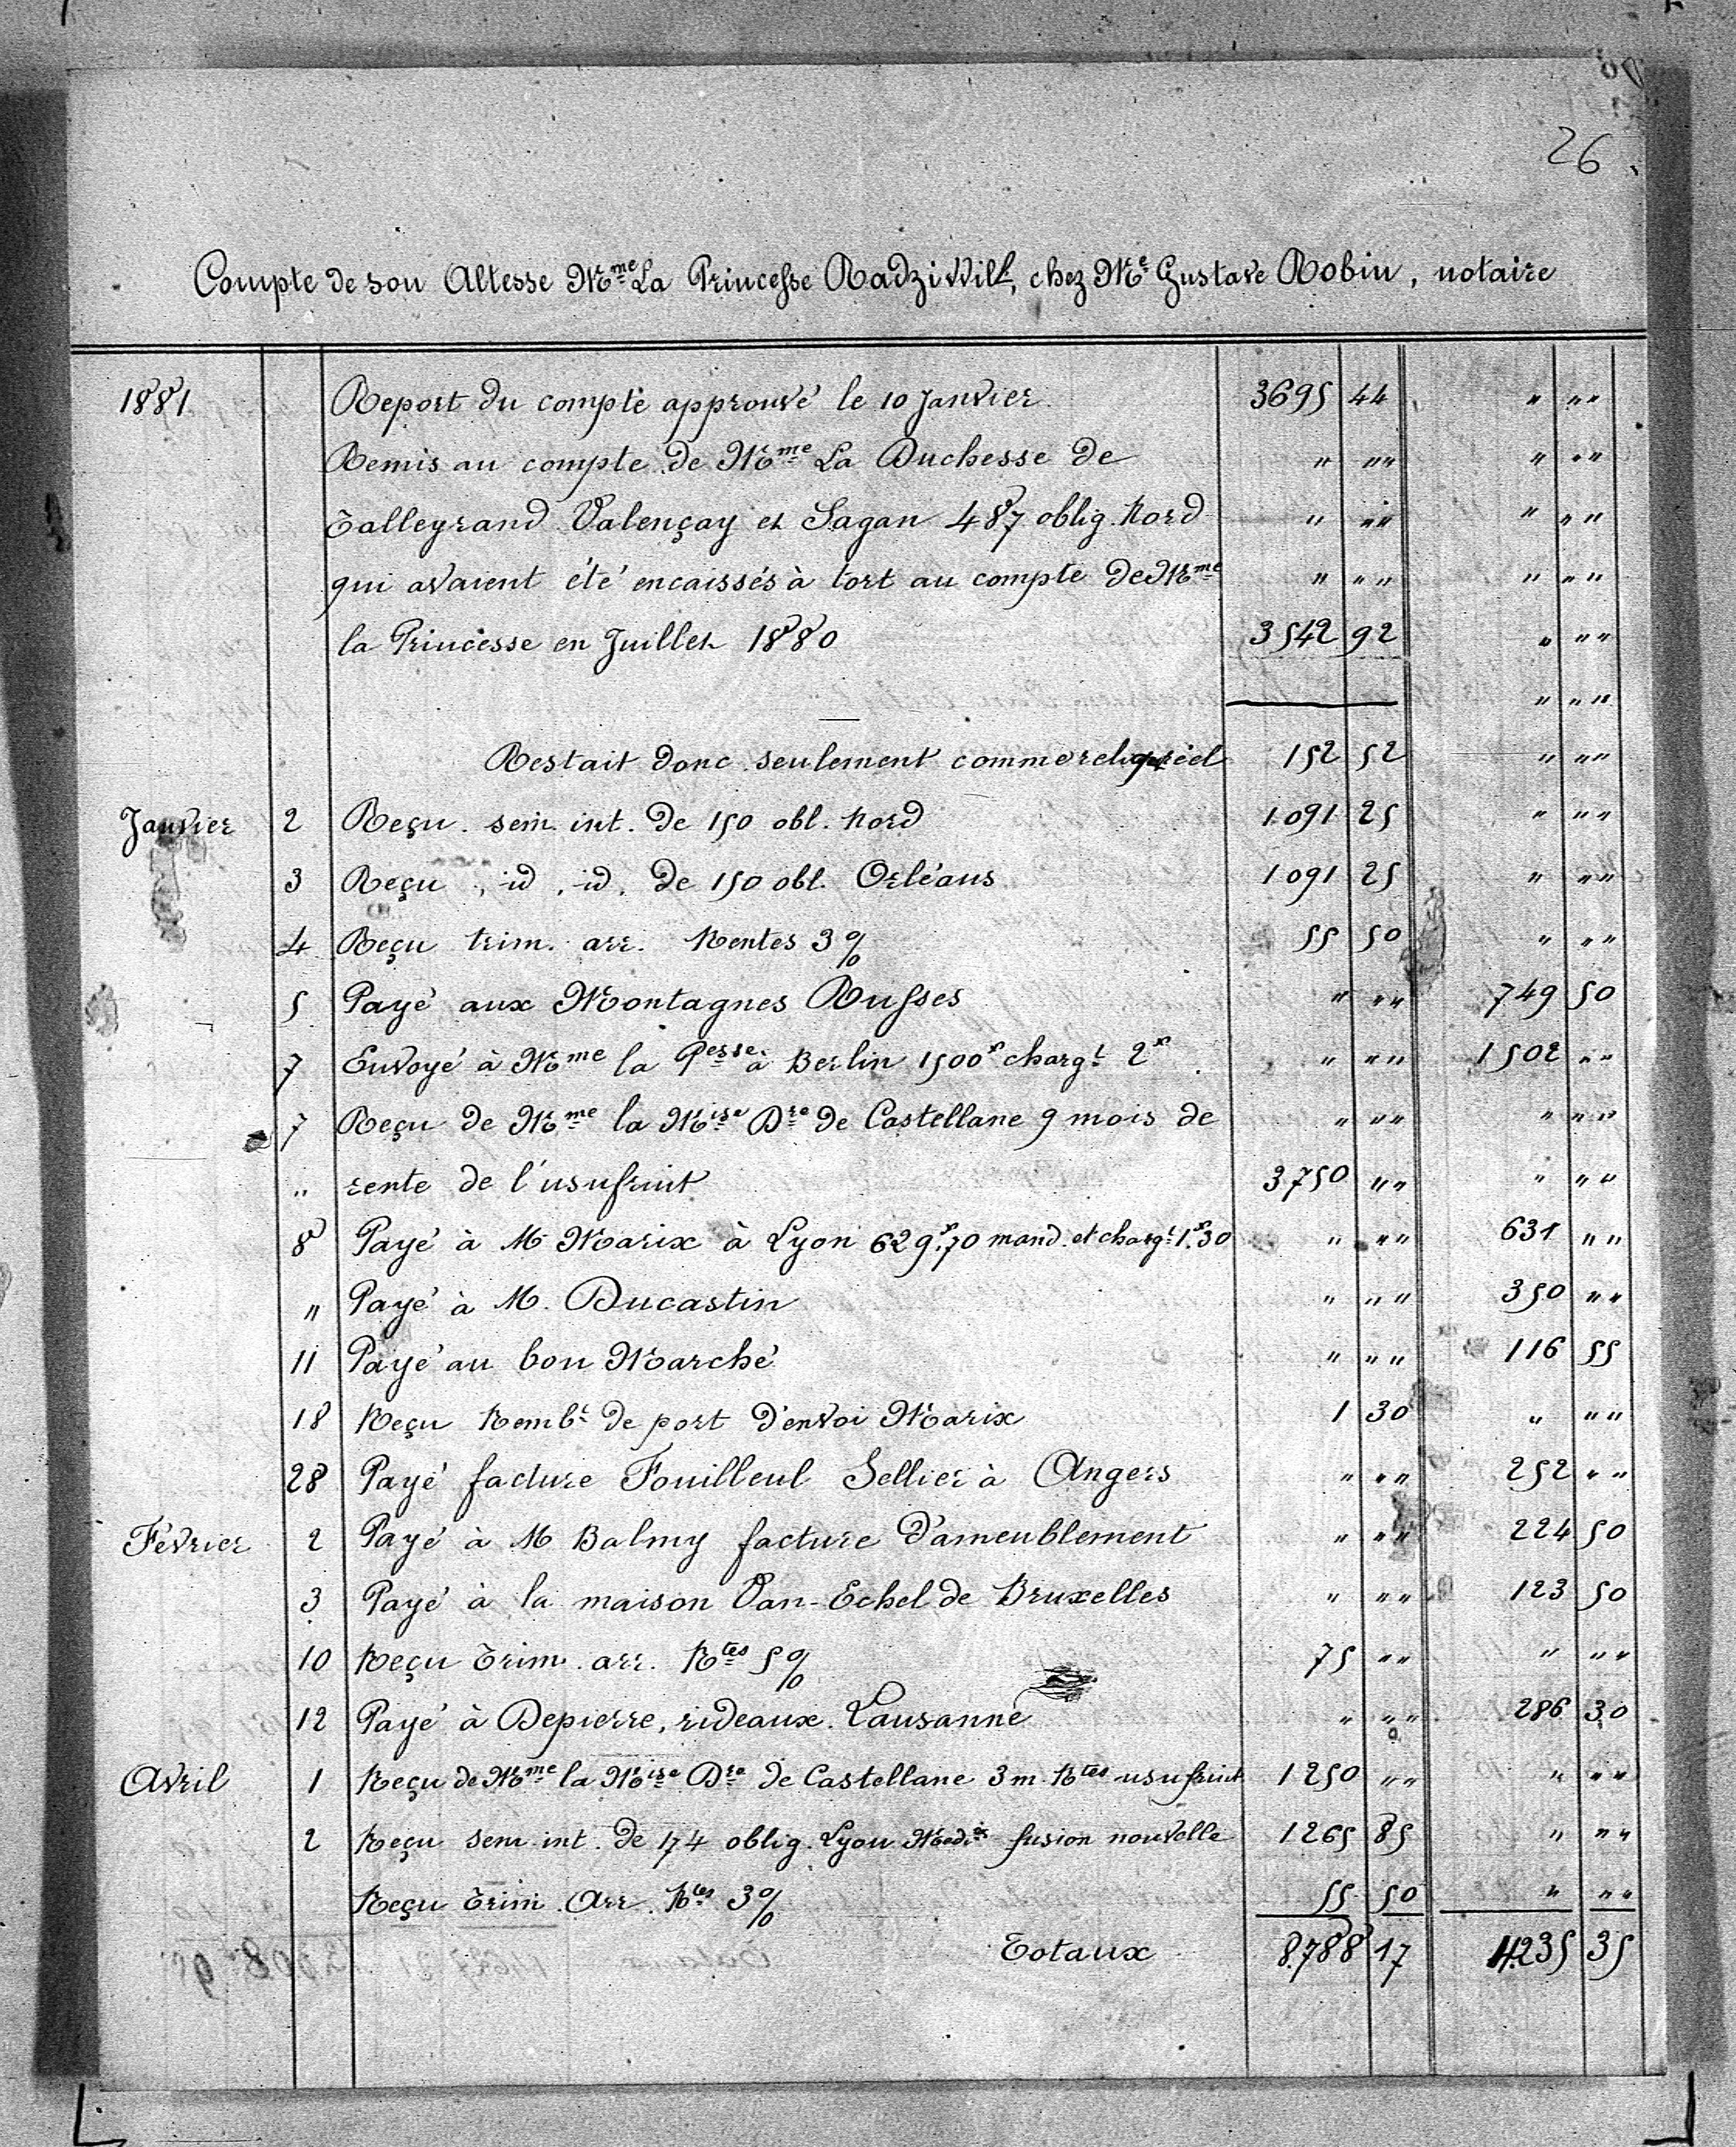 26.
Compte de son Altesse Mme La Princesse Radziwill, chez Me Gustave Robin, notaire
1881 Report du compte approuvé le 10 Janvier 3695 44 " ""
Remis au compte de Mme La Duchesse de " "" " ""
Talleyrand Valençay et Sagan 487 oblig. Nord " "" " ""
qui avaient été encaissés à tort au compte de Mme " "" " ""
la Princesse en Juillet 1880 3542 92 " ""
" ""
Restait donc seulement comme reliquat 152 52 " ""
Janvier 2 Reçu sem. int. de 150 obl. Nord 1091 25 " ""
3 Reçu, id, id, de 150 obl. Orléans 1091 25 " ""
4 Reçu trim. arr. Rentes 3 % 55 50 " ""
5 Payé aux Montagnes Russes " "" 749 50
7 Envoyé à Mme la Pesse à Berlin 1500f chargt 2f. " "" 1502 ""
7 Reçu de Mme la Mise Dre de Castellane 9 mois de " "" " ""
" rente de l'usufruit 3750 "" " ""
8 Payé à M Marix à Lyon 629f.70 mand. et chargt 1f.30 " "" 631 ""
" Payé à M. Ducastin " "" 350 ""
11 Payé au bon Marché " "" 116 55
18 Reçu Rembt de port d'envoi Marix 1 30 " ""
28 Payé facture Fouilleul Sellier à Angers " "" 252 ""
Février 2 Payé à M Balmy facture d'ameublement " "" 224 50
3 Payé à la maison Van-Echel de Bruxelles " "" 123 50
10 Reçu Trim. arr. Rtes 5 % 75 "" " ""
12 Payé à Depierre, rideaux. Lausanne " "" 286 30
Avril 1 Reçu de Mme la Mise Dre de Castellane 3 m. Rtes usufruit 1250 "" " ""
2 Reçu sem. int. de 174 oblig. Lyon fusion nouvelle 1265 85 " ""
Reçu Trim. Arr. Rtes 3 % 55 50 " ""
Totaux 8.788 17 4.235 35